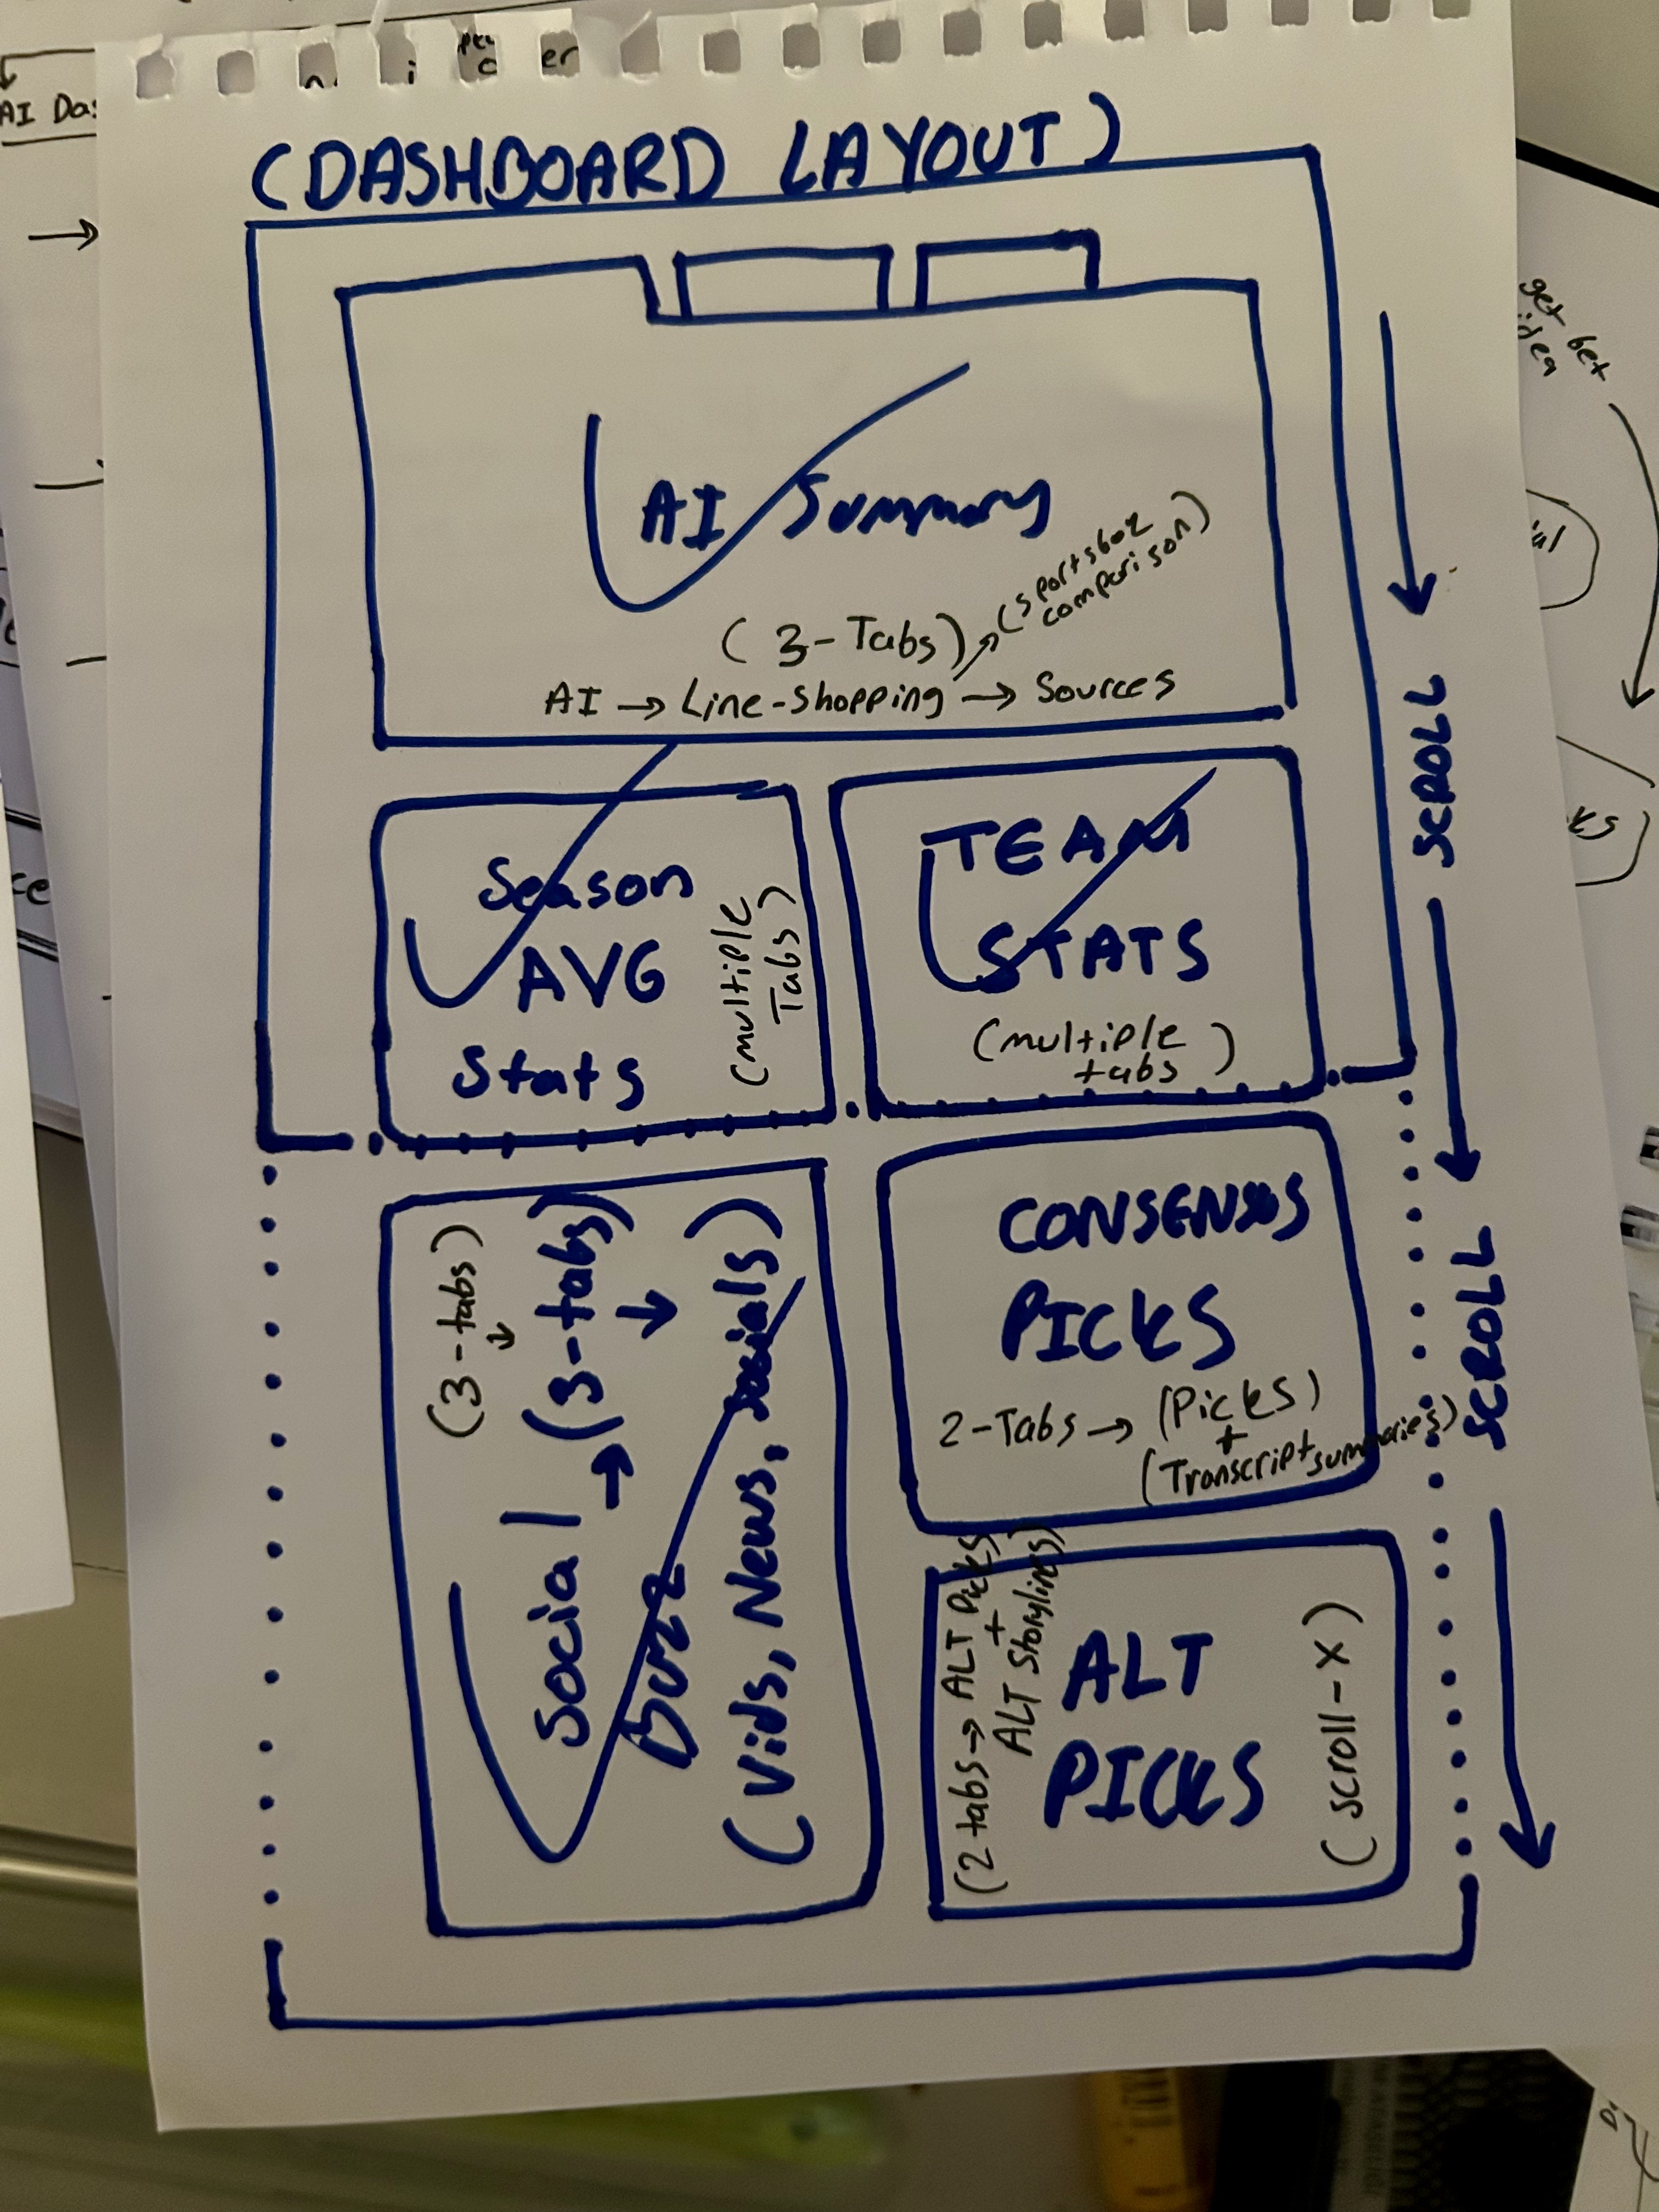 AI Das
(DASHBOARD LAYOUT)
AI Summary
(3-Tabs)
(sportsboz
comparison)
AI → Line-shopping → Sources
SCROLL
Season
AVG
Stats
(multiple
Tabs)
TEAM
STATS
(multiple
tabs)
SCROLL
(3-tabs)
Social → (3-tabs)
Buzz
(Vids, News, socials)
CONSENSUS
PICKS
2-Tabs → (Picks)
+
(Transcript summaries)
(2 tabs → ALT Picks
+
ALT Storylines)
ALT
PICKS
(scroll-x)
get bet
idea